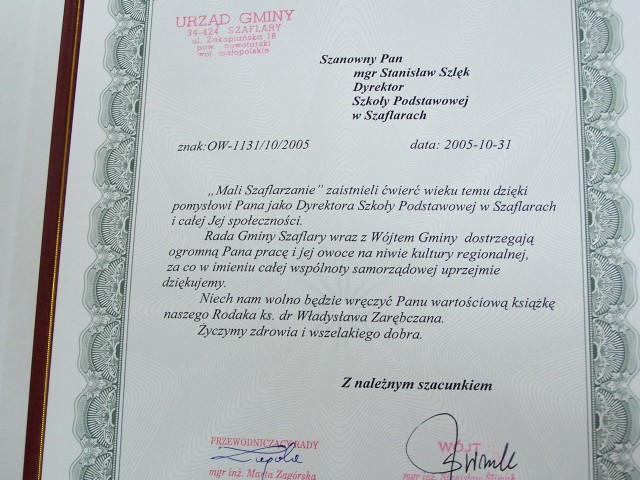 URZĄD GMINY
34-424 SZAFLARY
ul. Zakopiańska 18
pow. nowotarski
woj. małopolskie
Szanowny Pan
mgr Stanisław Szlęk
Dyrektor
Szkoły Podstawowej
w Szaflarach
znak:OW-1131/10/2005 data: 2005-10-31
„Mali Szaflarzanie” zaistnieli ćwierć wieku temu dzięki
pomysłowi Pana jako Dyrektora Szkoły Podstawowej w Szaflarach
i całej Jej społeczności.
Rada Gminy Szaflary wraz z Wójtem Gminy dostrzegają
ogromną Pana pracę i jej owoce na niwie kultury regionalnej,
za co w imieniu całej wspólnoty samorządowej uprzejmie
dziękujemy.
Niech nam wolno będzie wręczyć Panu wartościową książkę
naszego Rodaka ks. dr Władysława Zarębczana.
Życzymy zdrowia i wszelakiego dobra.
Z należnym szacunkiem
PRZEWODNICZĄCY RADY WÓJT
mgr inż. Marta Zagórska mgr inż. Stanisław Ślimak